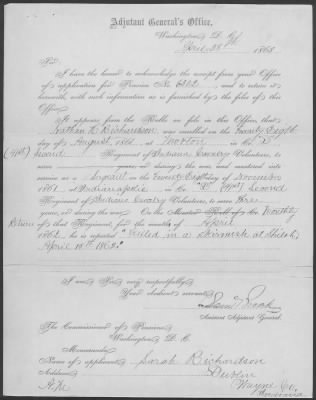 Adjutant General's Office,
Washington, D. C.
April 28th, 1868
Sir:
I have the honor to acknowledge the receipt from your Office
of application for Pension No. and to return it
herewith, with such information as is furnished by the files of this
Office.
It appears from the Rolls on file in this Office, that
Nathan Richardson, was enrolled on the Twenty Eighth
day of August, 1861, at in Co.
(41st) Second Regiment of Indiana Cavalry Volunteers, to
serve years, or during the war, and mustered into
service as a on the day of November
1861, at Indianapolis, in Co. (41st) Second
Regiment of Indiana Cavalry Volunteers, to serve three
years, or during the war. On the Muster Roll of Co. Monthly
Return of that Regiment, for the months of April
1862, he is reported "Killed in a skirmish at Shiloh,
April 10th 1862."
I am, Sir, very respectfully,
Your obedient servant,
Assistant Adjutant General.
The Commissioner of Pensions,
Washington, D. C.
Memoranda:
Name of applicant, Sarah Richardson
Address, Dublin
Wayne Co.
Indiana